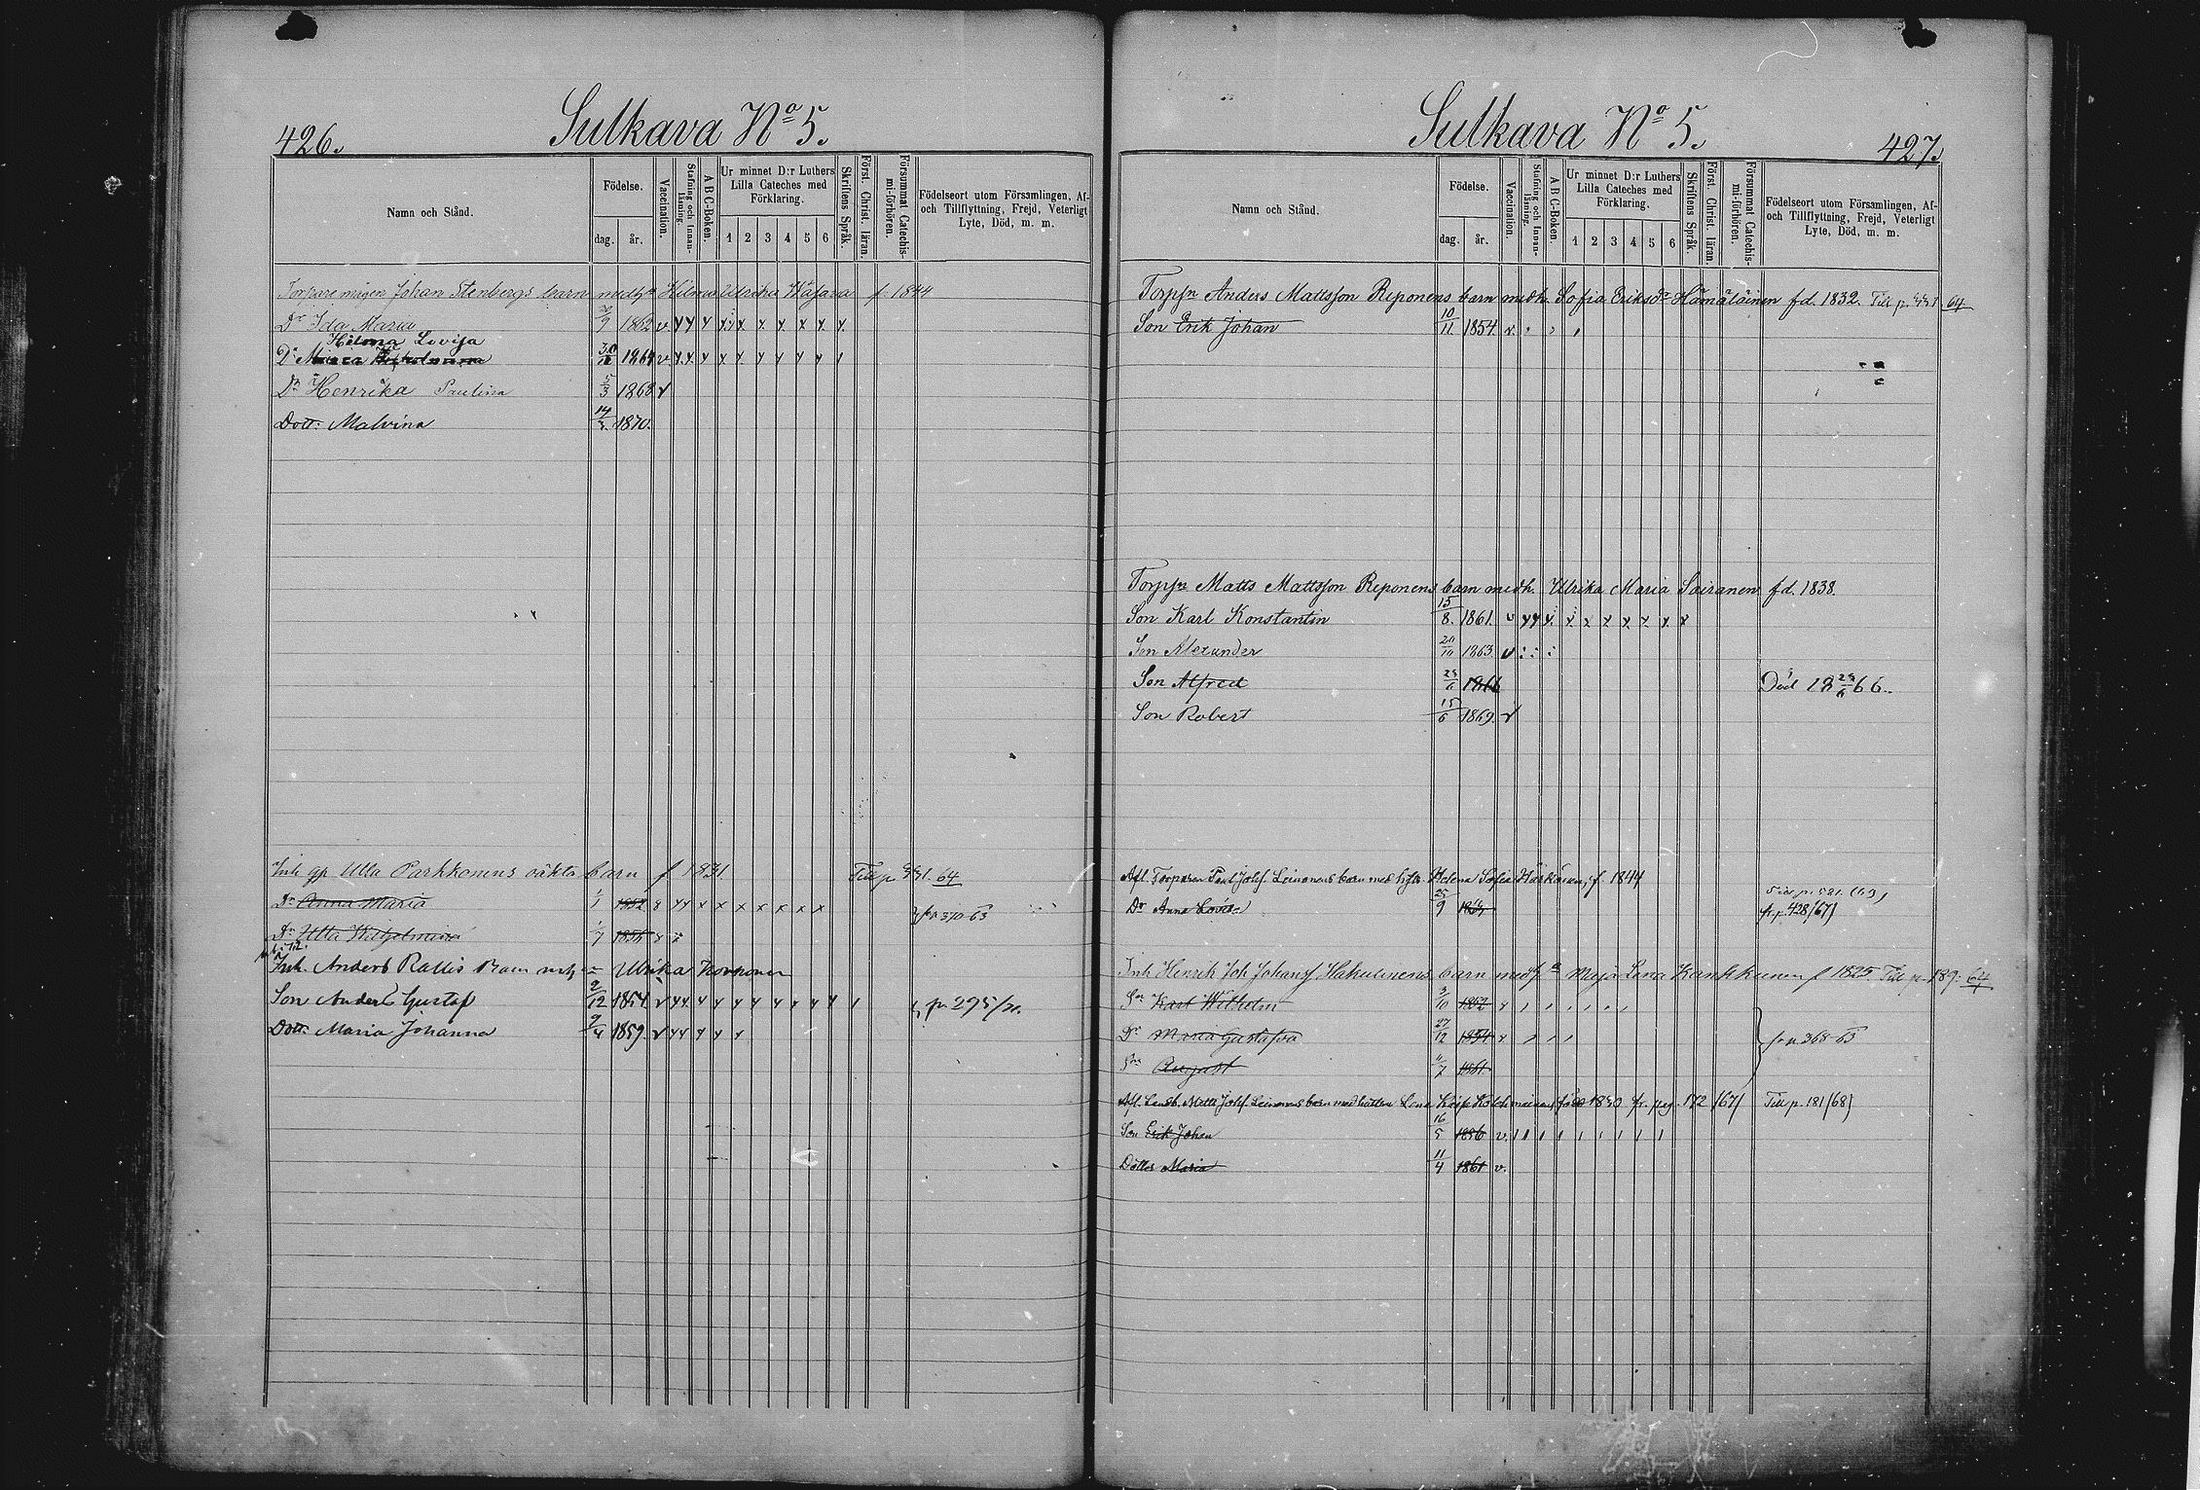 426.
Sulkava No 5.
Namn och Stånd.
Födelse.
dag.
år.
Vaccination.
Stafning och Innan-läsning.
A B C-Boken.
Ur minnet D:r Luthers Lilla Cateches med Förklaring.
1 2 3 4 5 6
Skriftens Språk.
Först. Christ. läran.
Försummat Catechis-mi-förhören.
Födelseort utom Församlingen, Af- och Tillflyttning, Frejd, Veterligt Lyte, Död, m. m.
Torpare mågen Johan Stenbergs barn med Hilma Ulrika f. 1844
Dr Ida Maria 9 1862 v
Helena Lovisa
Dr 30 1864 v
Dr Henrika Paulina 5/3 1868 v
Dott: Malvina 14 1870.
Inh Ulla Parhkonens oäkta barn f 1831 Till p 64
Dr Anna Maria 1/1 1852
fr p 370-63
Dr Ulla Wilhelmina 1854
Inh. Anders Rallis Barn Ulrika
Son Anders Gustaf 2/12 1854 v p. 295/
Dott: Maria Johanna 9/4 1859. v
Sulkava No 5.
427.
Namn och Stånd.
Födelse.
dag.
år.
Vaccination.
Stafning och Innan-läsning.
A B C-Boken.
Ur minnet D:r Luthers Lilla Cateches med Förklaring.
1 2 3 4 5 6
Skriftens Språk.
Först. Christ. läran.
Försummat Catechis-mi-förhören.
Födelseort utom Församlingen, Af- och Tillflyttning, Frejd, Veterligt Lyte, Död, m. m.
Torp:n Anders Mattsson Reponens barn med h. Sofia Eriksdr Hämäläinen fd. 1832. Till p. 64
Son Erik Johan 10/11 1854. v.
Torp:n Matts Mattsson Reponens barn med h. Ulrika Maria Sairanen fd. 1838.
Son Karl Konstantin 15/8. 1861. v
Son Alexander 20/10 1863. v
Son Alfred 1866 Död 18 66.
Son Robert 15/6 1869. v
Afl. Torparen Paul Josef Leinonens barn med Helena Sofia Härkönen, f. 1844
Dr Anna Lovisa 25/9 fr. p. 428/67)
Inh Henrik Joh Johansf Hakulinens barn med Maja Lena Kankkunen f 1825. Till p. 189. 64
Sn Karl Wilhelm 3/10 1852 v
Dr Maria Gustafva 27/12 1854 v fr p 368-63
Sn August 7 1861
Afl. Landb. Matts Josef Leinonens barn med hustru Lena född 1830 fr. pag. 172 /67/ Till p. 181/68)
Son Erik Johan 16/5 1856 v.
Dotter Maria 11/4 1861 v.